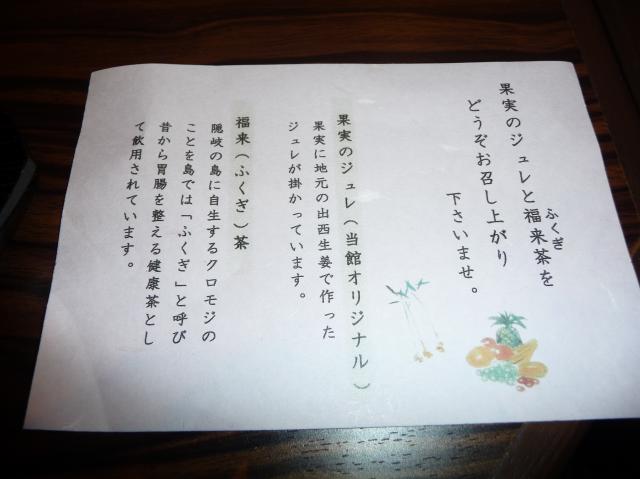 果実のジュレと福来茶を
ふくぎ
どうぞお召し上がり
下さいませ。
果実のジュレ（当館オリジナル）
果実に地元の出西生姜で作った
ジュレが掛かっています。
福来（ふくぎ）茶
隠岐の島に自生するクロモジの
ことを島では「ふくぎ」と呼び
昔から胃腸を整える健康茶とし
て飲用されています。